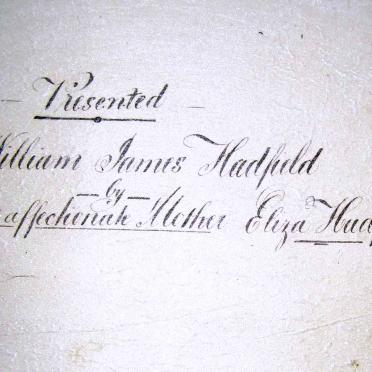 Presented
William James Hadfield
by
affectionate Mother Eliza